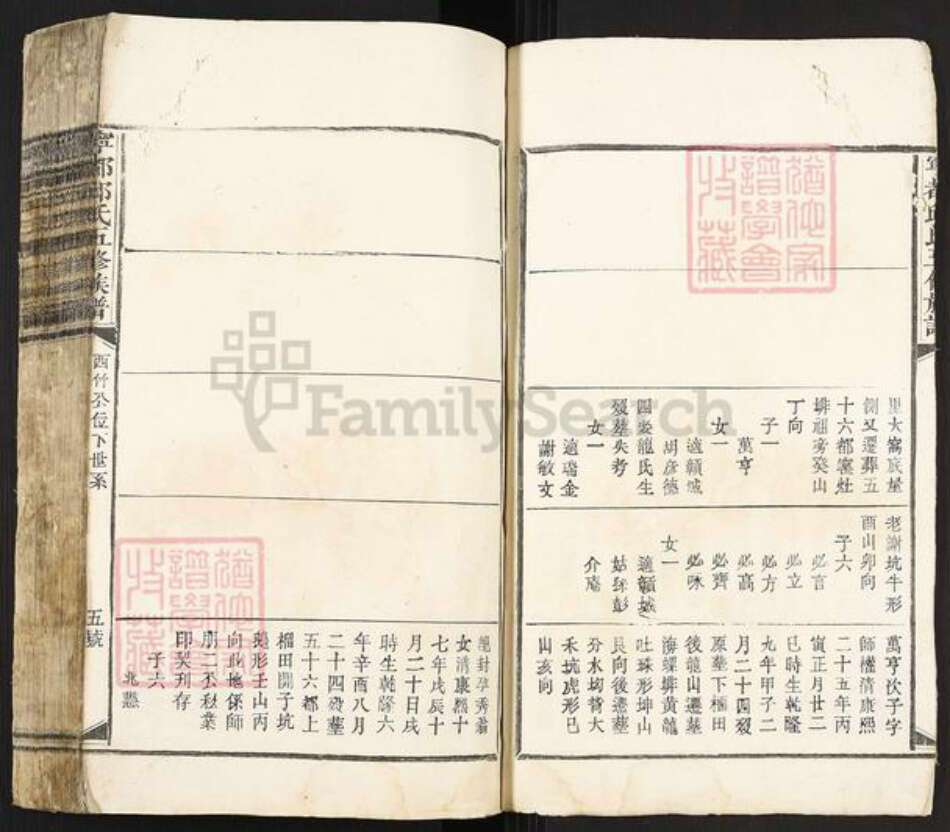 里大窩底屋
側又遷葬五
十六都寨灶
排祖旁癸山
丁向
子一
萬亨
女一
適贛城
胡彦德
四娶龍氏生
歿墓失考
女一
適瑞金
謝敏文
老謝坑牛形
酉山卯向
子六
必言
必立
必方
必高
必齊
必咏
女一
適贛城
姑稣彭
介庵
萬亨次子字
師權清康熙
二十五年丙
寅正月廿二
巳時生乾隆
九年甲子二
月二十四歿
原墓下楠田
後龍山遷墓
海螺排黃龍
吐珠形坤山
艮向後遷墓
分水坳背大
禾坑虎形巳
山亥向
娶封孕秀
女清康熙十
七年戊辰十
月二十日戌
時生乾隆六
年辛酉八月
二十四歿墓
五十六都上
楠田開子坑
鵝形壬山丙
向此地係師
朋二丕秋業
印契刋存
子六
兆
寧都邱氏五修族譜
西竹公位下世系
五號
FamilySearch
譜學會
收藏